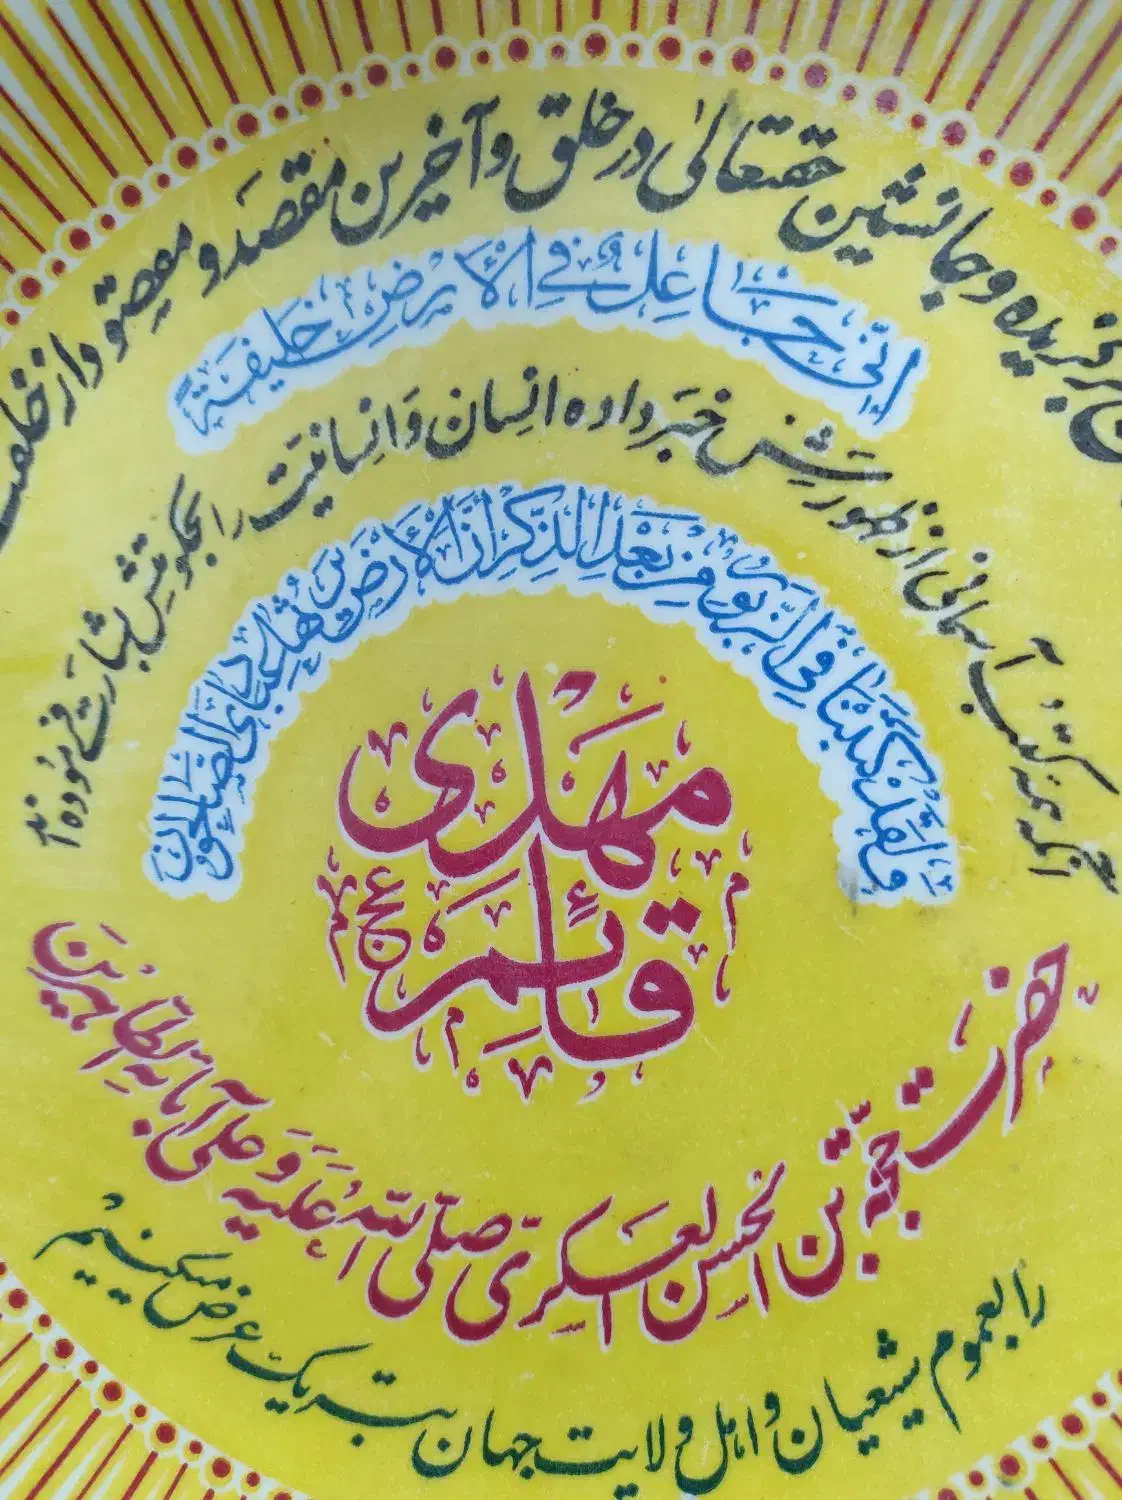 برگزیده و جانشین حقتعالیٰ در خلق و آخرین مقصد و مقصود از خلقت
اِنّی جَاعِلٌ فِی الْاَرْضِ خَلیفَةً
آنکه همه کتب آسمانی از ظهورش خبر داده انسان و انسانیت را بحکومتش بشارت فرموده‌اند
وَلَقَدْ كَتَبْنَا فِی الزَّبُورِ مِنْ بَعْدِ الذِّكْرِ اَنَّ الْاَرْضَ یَرِثُهَا عِبَادِیَ الصَّالِحُونَ
مهدی
قائم عج
حضرت حجّة بن الحسن العسکری صلّی اللّه علیه و علی آبائه الطاهرین
را بعموم شیعیان و اهل ولایت جهان تبریک عرض میکنیم